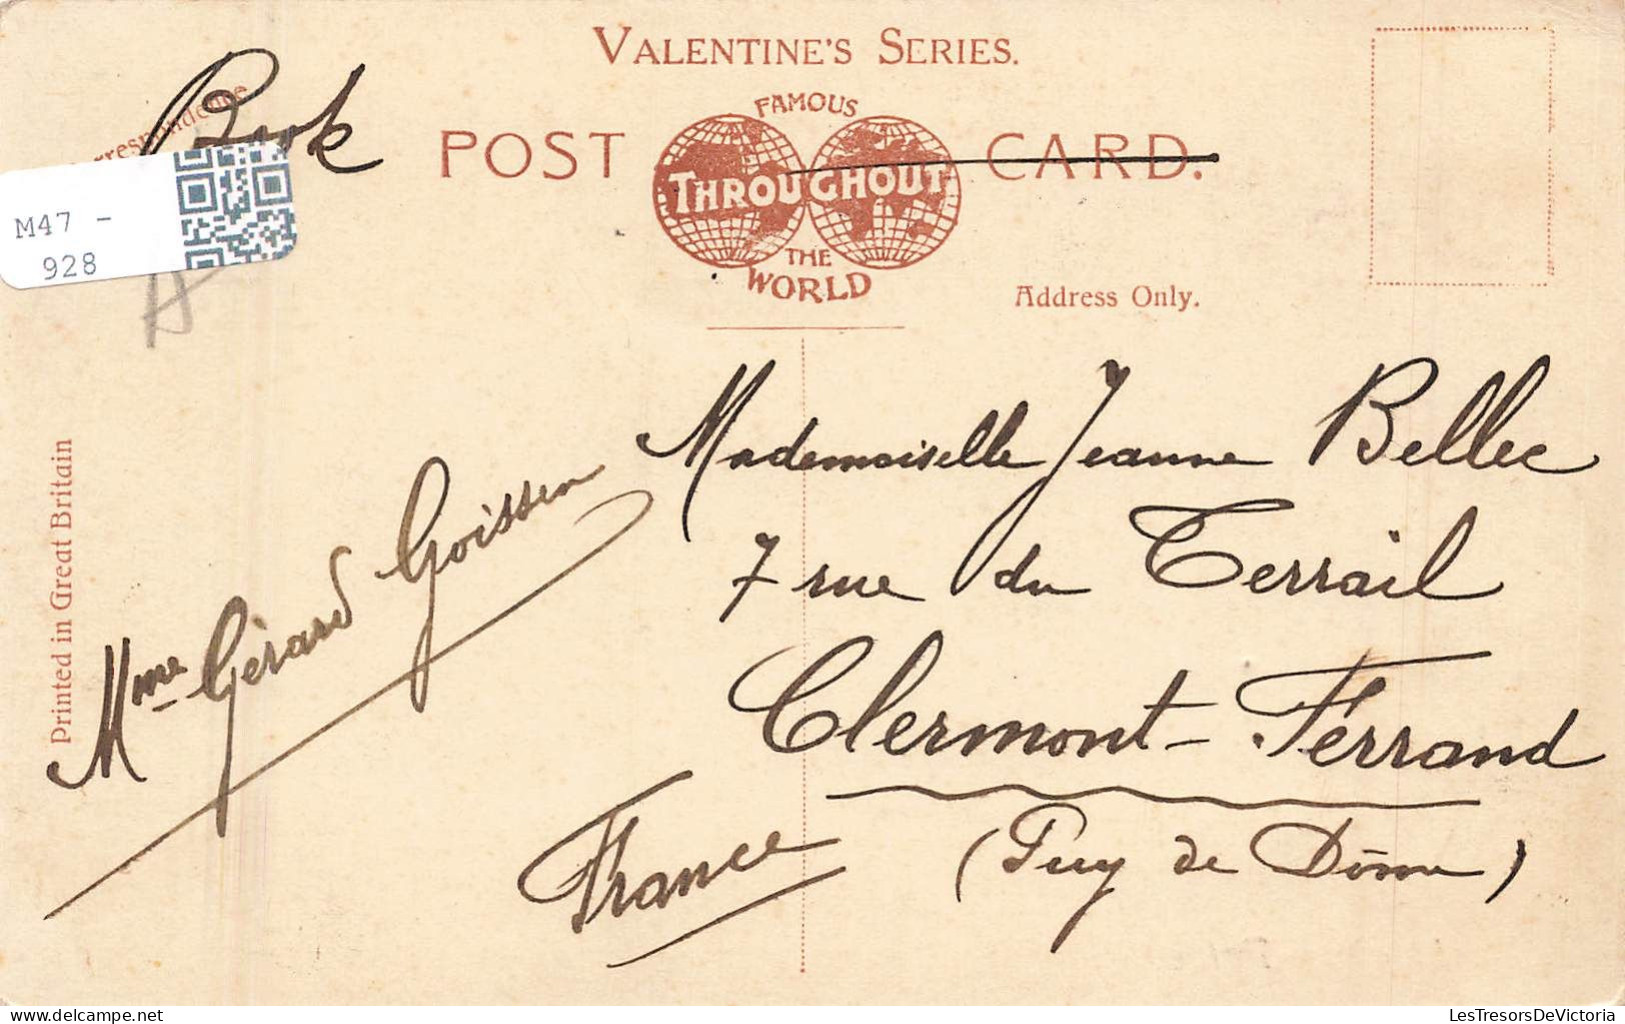 VALENTINE'S SERIES.
Book
POST CARD.
FAMOUS
THROUGHOUT
THE
WORLD
M47 -
928
Address Only.
Printed in Great Britain
Mme Gérard Goissen
Mademoiselle Jeanne Bellec
7 rue du Terrail
Clermont-Ferrand
(Puy de Dôme)
France
delcampe.net
LesTresorsDeVictoria